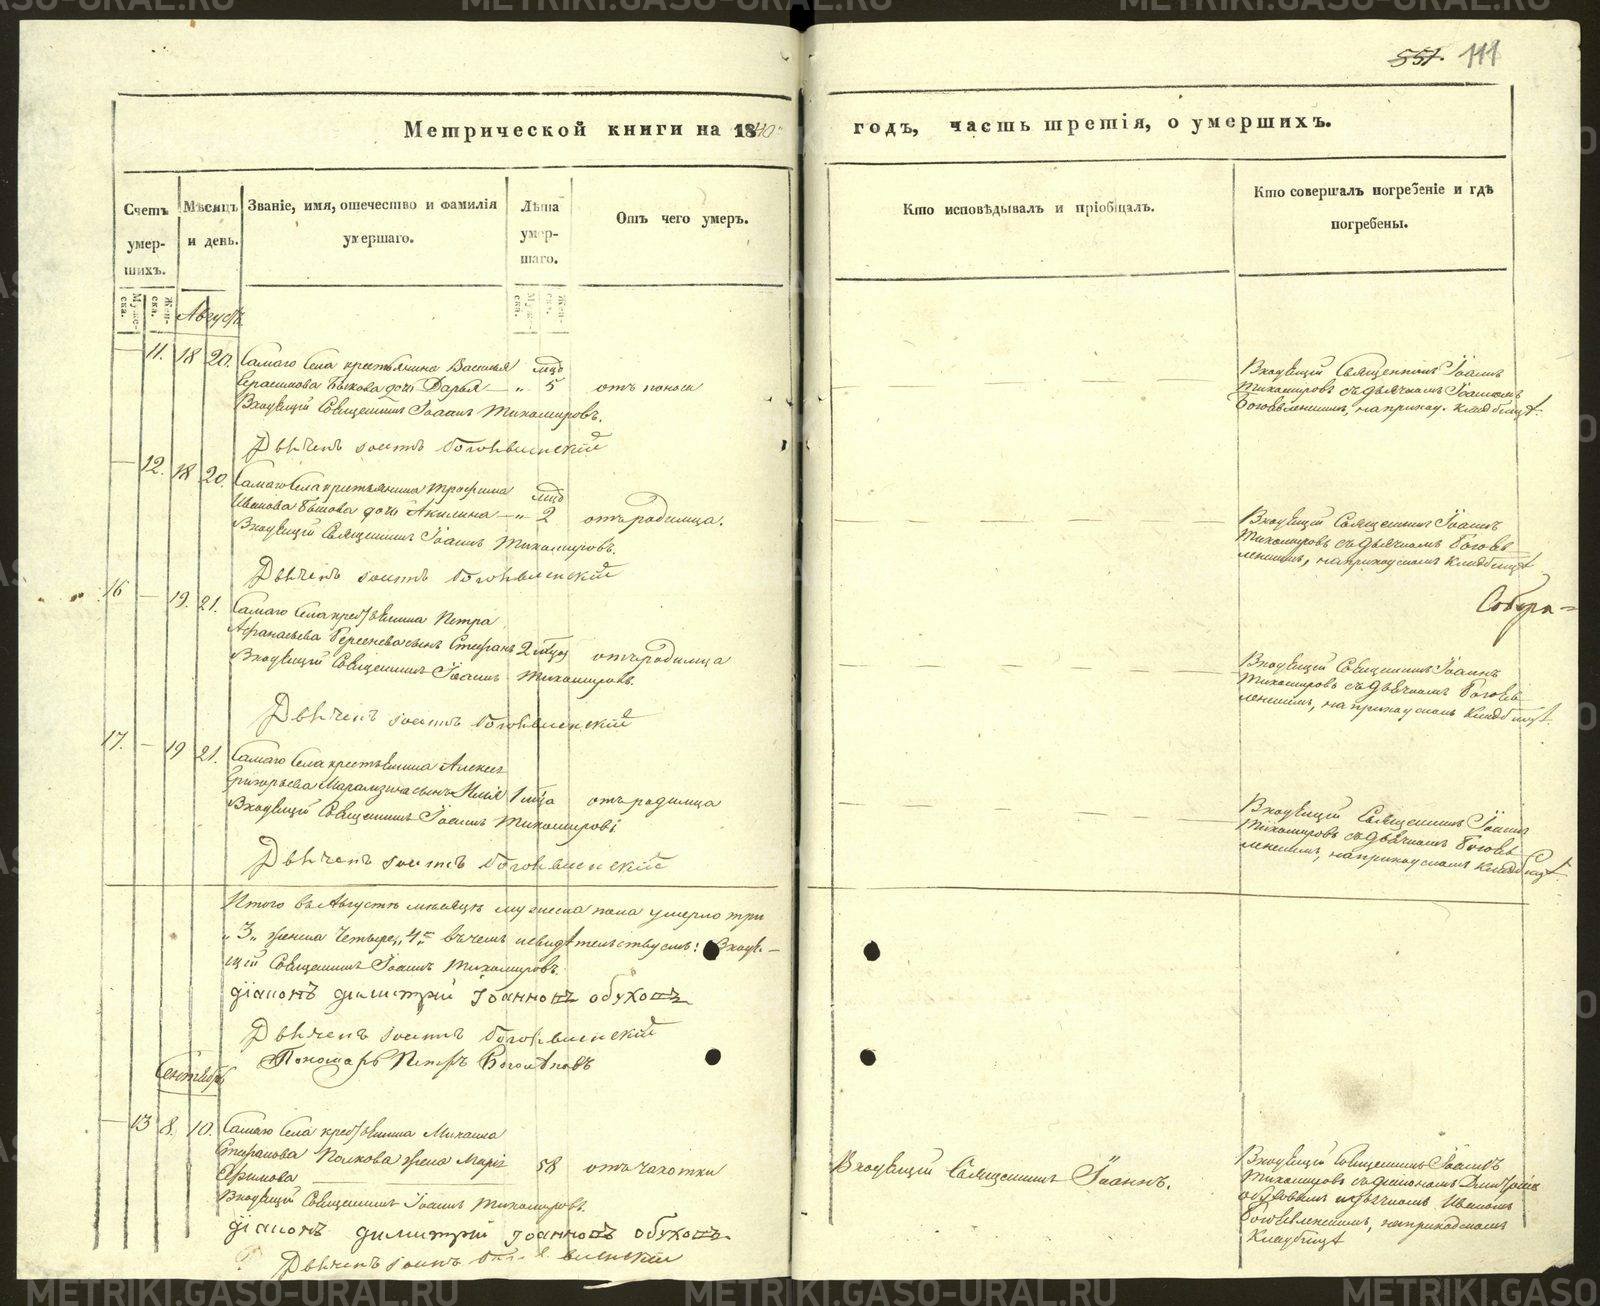 METRIKI.GASO-URAL.RU
551. 111
Метрической книги на 1840 годъ, часть третія, о умершихъ.
Счетъ умер-шихъ.
Мѣсяцъ и день.
Званіе, имя, отечество и фамилія умершаго.
Лѣта умер-шаго.
Отъ чего умеръ.
Кто исповѣдывалъ и пріобщалъ.
Кто совершалъ погребеніе и гдѣ погребены.
Муже-ска. Жен-ска.
Муже-ска. Жен-ска.
Августъ
11. 18 20. Самаго Села крестьянина Василья мцъ
Герасимова Быкова дочь Дарья — „ 5 отъ поноса
Входящій Священникъ Іоаннъ Тихомировъ.
Дьячекъ Іоаннъ Богоявленскій
Входящій Священникъ Іоаннъ
Тихомировъ съ дьячкомъ Іоанномъ
Богоявленскимъ, на приход. кладбищѣ.
12. 18 20. Самаго Села крестьянина Трофима мцъ
Иванова дочь Акилина — „ 2 отъ родимца.
Входящій Священникъ Іоаннъ Тихомировъ.
Дьячекъ Іоаннъ Богоявленскій
Входящій Священникъ Іоаннъ
Тихомировъ съ дьячкомъ Богояв-
ленскимъ, на приходскомъ кладбищѣ
16 — 19. 21. Самаго Села крестьянина Петра
Афанасьева сынъ Стефанъ 2 отъ родимца
Входящій Священникъ Іоаннъ Тихомировъ.
Дьячекъ Іоаннъ Богоявленскій
Собора=
Входящій Священникъ Іоаннъ
Тихомировъ съ дьячкомъ Богояв-
ленскимъ, на приходскомъ кладбищѣ.
17. — 19 21. Самаго Села крестьянина Алексея
Григорьева сынъ Илья 1 мца отъ родимца
Входящій Священникъ Іоаннъ Тихомировъ
Дьячекъ Іоаннъ Богоявленскій
Входящій Священникъ Іоаннъ
Тихомировъ съ дьячкомъ Богояв-
ленскимъ, на приходскомъ кладбищѣ
Итого въ Августѣ мѣсяцѣ мужеска пола умерло три
„3„ женска четыре „4„ въ чемъ и свидѣтельствуемъ: Входя-
щій Священникъ Іоаннъ Тихомировъ.
діаконъ димитрій Іоанновъ обуховъ
Дьячекъ Іоаннъ Богоявленскій
Пономарь Петръ
Сентябрь
— 13 8. 10. Самаго Села крестьянина Михаила
Стефанова Попкова жена Марія 58 отъ чахотки
Ефимова
Входящій Священникъ Іоаннъ Тихомировъ.
діаконъ димитрій Іоанновъ обуховъ
Дьячекъ Іоаннъ Богоявленскій
Входящій Священникъ Іоаннъ.
Входящій Священникъ Іоаннъ
Тихомировъ съ діакономъ Димитріемъ
Обуховымъ и дьячкомъ Иваномъ
Богоявленскимъ, на приходскомъ
Кладбищѣ